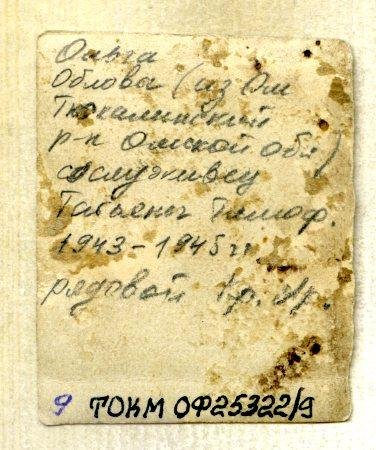 Ольга
Облова (из Ом
Тюкалинский
р-н Омской обл)
сослуживец
Татьяны Тимоф.
1943-1945 гг
рядовой Кр. Ар.
9 ТОКМ ОФ25322/9